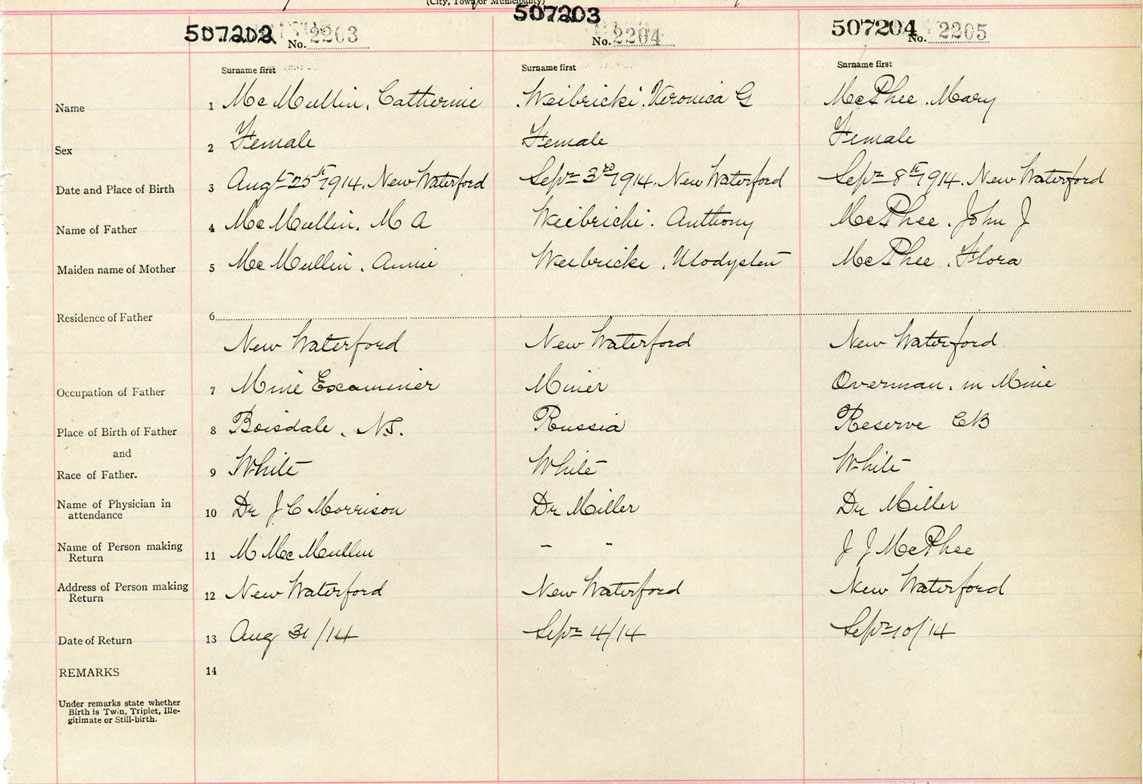 (City, Town or Municipality)
507202 No. 2203 507203 No. 2204 507204 No. 2205
Surname first Surname first Surname first
Name 1 McMullin, Catherine Weibricki. Veronica G McPhee. Mary
Sex 2 Female Female Female
Date and Place of Birth 3 Augt 25th 1914. New Waterford Sept 3rd 1914. New Waterford Sept 8th 1914. New Waterford
Name of Father 4 McMullin. M A Weibricki. Anthony McPhee. John J
Maiden name of Mother 5 McMullin. Annie Weibricki. McPhee. Flora
Residence of Father 6
New Waterford New Waterford New Waterford
Occupation of Father 7 Mine Examiner Miner Overman. in Mine
Place of Birth of Father 8 Boisdale. N.S. Russia Reserve CB
and
Race of Father. 9 White White White
Name of Physician in attendance 10 Dr J C Morrison Dr Miller Dr Miller
Name of Person making Return 11 M McMullin - - J J McPhee
Address of Person making Return 12 New Waterford New Waterford New Waterford
Date of Return 13 Aug 31/14 Sept 4/14 Sept 10/14
REMARKS 14
Under remarks state whether
Birth is Twin, Triplet, Ille-
gitimate or Still-birth.